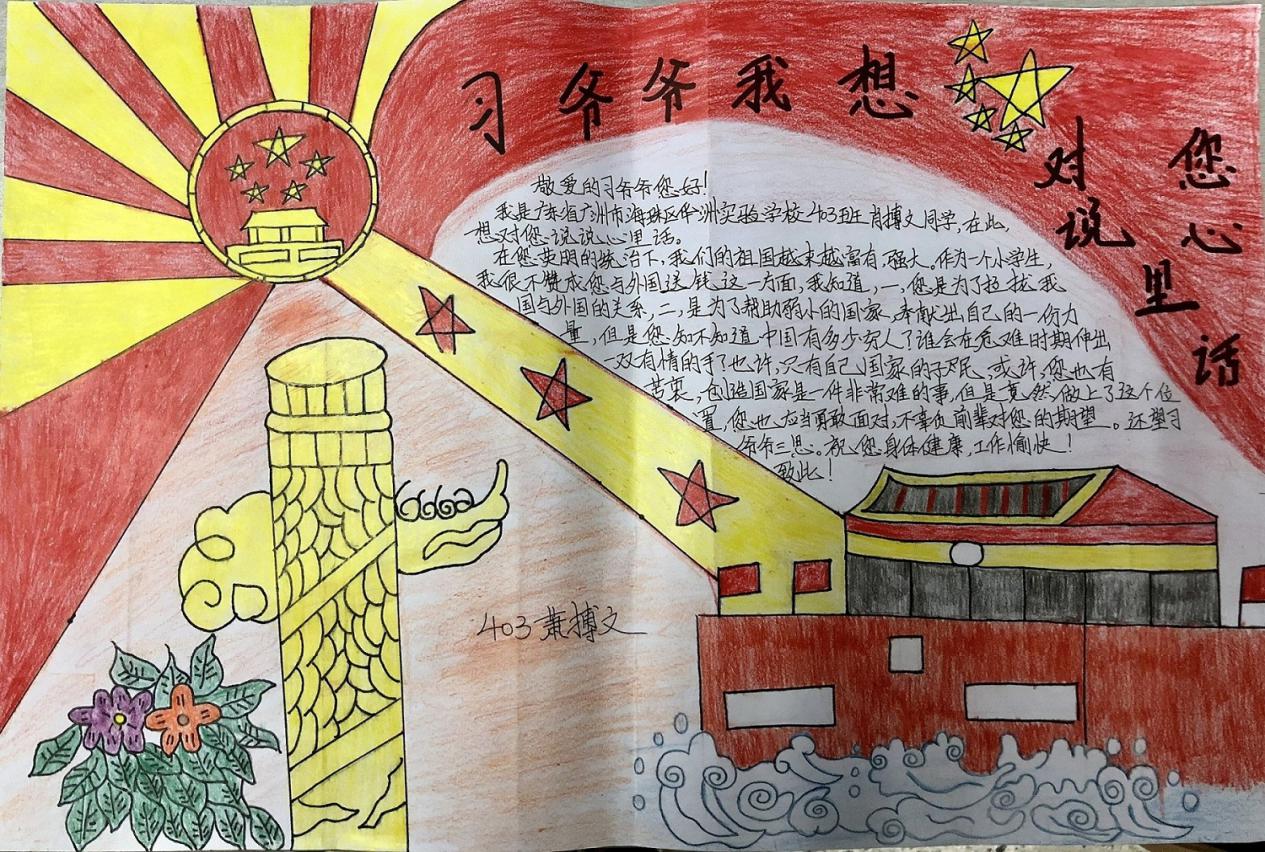 习爷爷我想
对您
说心
里话
敬爱的习爷爷您好!
我是广东省广州市海珠区华洲实验学校403班肖搏文同学,在此,
想对您说说心里话。
在您英明的统治下,我们的祖国越来越富有、强大。作为一个小学生,
我很不赞成您与外国送钱这一方面,我知道,一,您是为了拉拢我
国与外国的关系,二,是为了帮助弱小的国家,奉献出自己的一份力
量,但是您知不知道中国有多少穷人了谁会在危难时期伸出
一双有情的手了也许,只有自己国家的子民,或许,您也有
苦衷,创造国家是一件非常难的事,但是竟然做上了这个位
置,您也应当勇敢面对,不辜负前辈对您的期望。还望习
爷爷三思。祝您身体健康,工作愉快!
致此!
403萧搏文